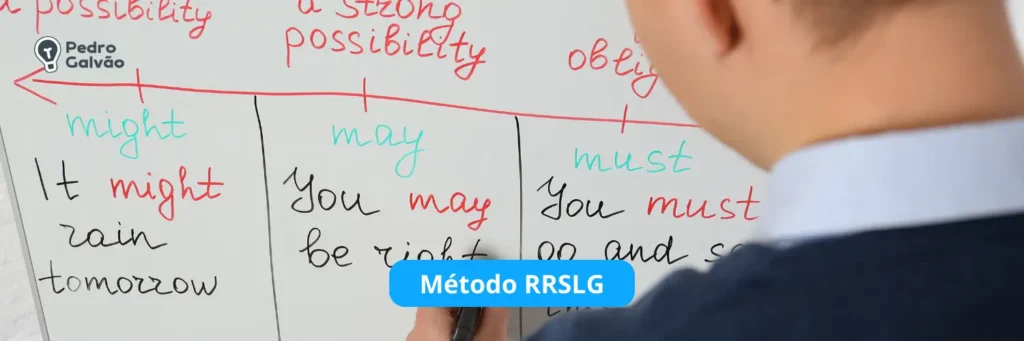 a possibility
a strong
possibility
Pedro
Galvão
might
It might
rain
tomorrow
may
You may
be right
must
You must
go and
Método RRSLG